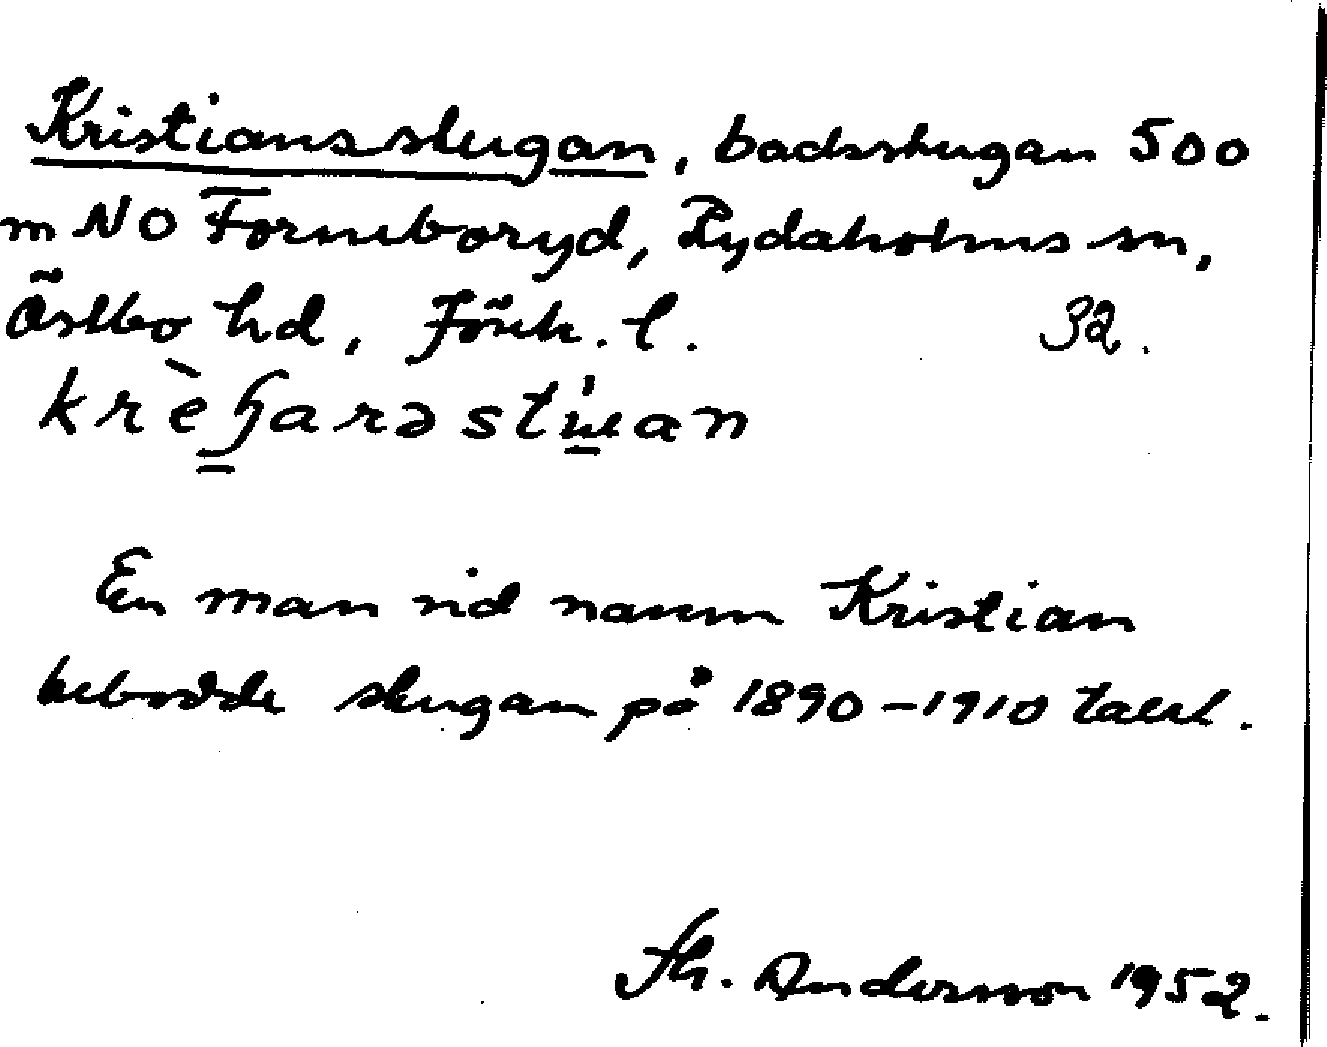 Kristiansstugan, backstugan 500
m NO Forneboryd, Rydaholms sn,
Östbo hd, Jönk. l. 32.
En man vid namn Kristian
bebodde stugan på 1890-1910 talet.
Andersson 1952.